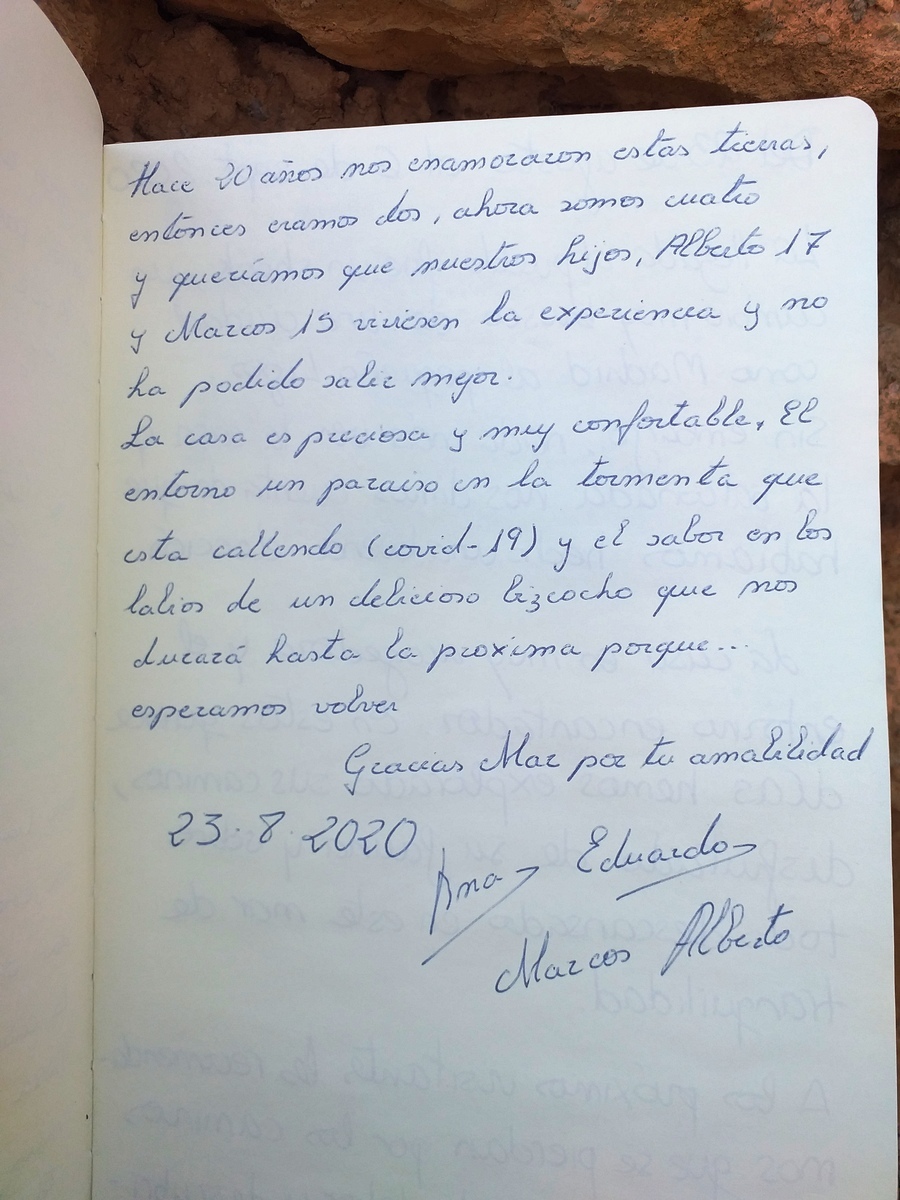 Hace 20 años nos enamoraron estas tierras,
entonces eramos dos, ahora somos cuatro
y queríamos que nuestros hijos, Alberto 17
y Marcos 15 viviesen la experiencia y no
ha podido salir mejor.
La casa es preciosa y muy confortable. El
entorno un paraiso en la tormenta que
esta callendo (covid-19) y el sabor en los
labios de un delicioso bizcocho que nos
durará hasta la proxima porque...
esperamos volver
Gracias Mar por tu amabilidad
23.8.2020
Ana Eduardo
Marcos Alberto